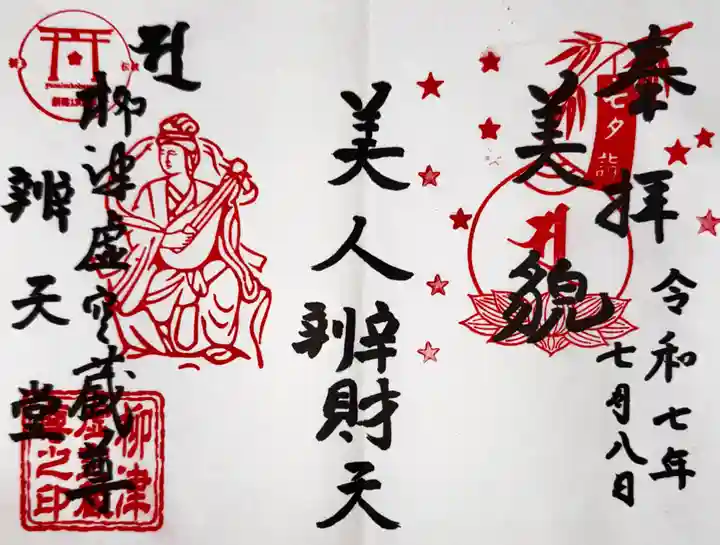 奉拝
七夕
詣
令和七年
七月八日
美貌
美人辨財天
柳津虚空蔵尊
辨天堂
柳津
虚空蔵
尊之印